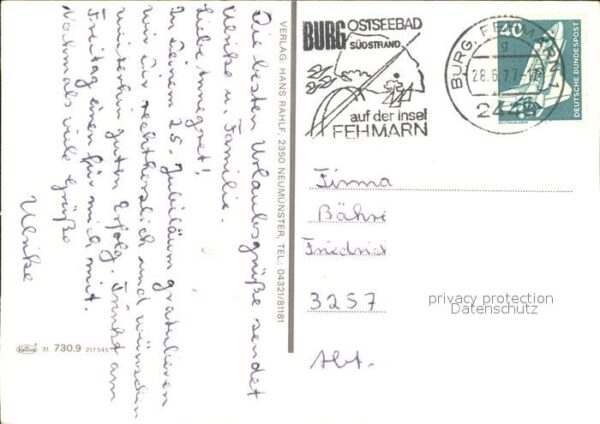 Die besten Urlaubsgrüße sendet
Ulrike u. Familie.
Liebe Annegret!
Zu Deinem 25. Jubiläum gratulieren
wir Dir recht herzlich und wünschen
weiterhin guten Erfolg. Trinkt am
Freitag einen für mich mit.
Nochmals viele Grüße
Ulrike
31. 730.9 217 545
VERLAG HANS RAHLF, 2350 NEUMÜNSTER, TEL.: 04321/81181
BURG OSTSEEBAD
SÜDSTRAND
auf der insel
FEHMARN
BURG, FEHMARN 1
g
28.6.77
2448
40
DEUTSCHE BUNDESPOST
Firma
Bähre
Friedrich
3257
Abt.
privacy protection
Datenschutz